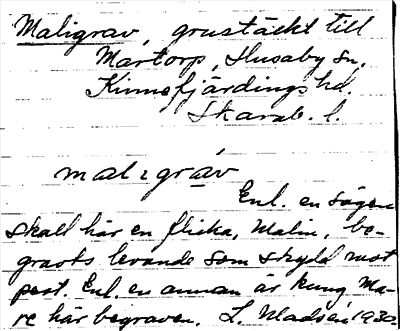 Maligrav, grustäckt till
Martorp, Husaby sn,
Kinnefjärdings hd.
Skarab. l.
mal ı gráv
Enl. en sägen
skall här en flicka, Malin, be-
gravts levande som skydd mot
pest. Enl. en annan är kung Ma-
re här begraven. L. Madsén 1930